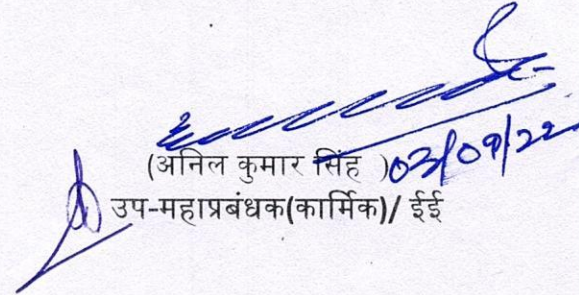 (अनिल कुमार सिंह ) 03/09/22
उप-महाप्रबंधक(कार्मिक)/ ईई